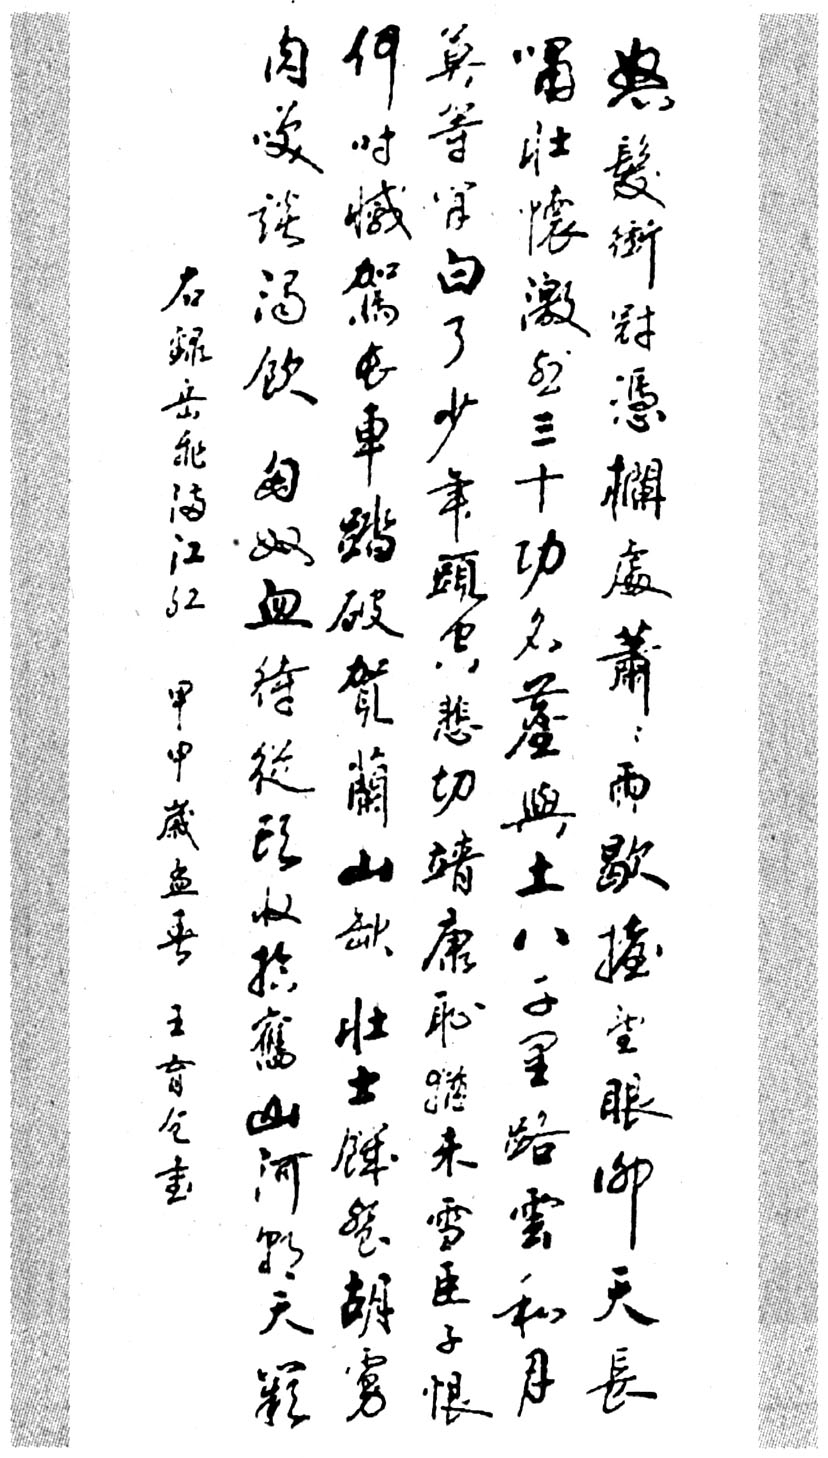 怒髮衝冠憑欄處蕭〻雨歇擡望眼仰天長
嘯壯懷激烈三十功名塵與土八千里路雲和月
莫等閒白了少年頭空悲切靖康恥猶未雪臣子恨
何時憾駕長車踏破賀蘭山缺壯士饑餐胡虜
肉笑談渴飲匈奴血待從頭收拾舊山河朝天闕
右錄岳飛滿江紅 甲申歲孟春 王育 書